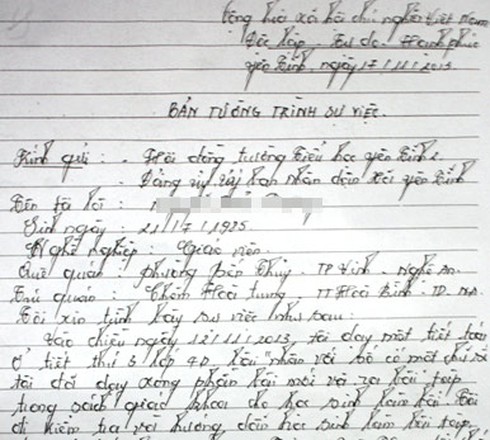 Cộng hòa xã hội chủ nghĩa Việt Nam
Độc lập, Tự do, Hạnh phúc
Yên Tĩnh, ngày 17/11/2013.
BẢN TƯỜNG TRÌNH SỰ VIỆC.
Kính gửi: - Hội đồng trường Tiểu học Yên Tĩnh 2
- Đảng ủy, Uỷ ban nhân dân Xã Yên Tĩnh
Tên tôi là:
Sinh ngày: 21/7/1975.
Nghề nghiệp: Giáo viên.
Quê quán: phường Bến Thủy - TP Vinh - Nghệ An.
Trú quán: Hòa Trung - TT Hòa Bình - TD. NA.
Tôi xin trình bày sự việc như sau:
Vào chiều ngày 12/11/2013, tôi dạy một tiết toán
ở tiết thứ 3 lớp 4D bài "nhân với số có một chữ số
tôi đã dạy xong phần bài mới và ra bài tập
trong sách giáo khoa cho học sinh làm bài. Tôi
đi kiểm tra và hướng dẫn học sinh làm bài tập,